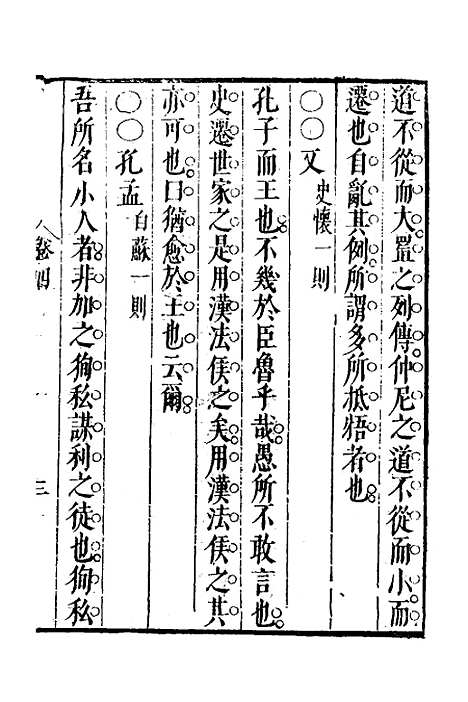 道不從而大置之列傳仲尼之道不從而小而
遷也自亂其例所謂多所抵牾者也
○○又 史懷一則
孔子而王也不幾於臣魯乎哉愚所不敢言也
史遷世家之是用漢法侯之矣用漢法侯之其
亦可也曰猶愈於王也云爾
○○孔孟 自蘇一則
吾所名小人者非加之狥私謀利之徒也狥私
卷四
三